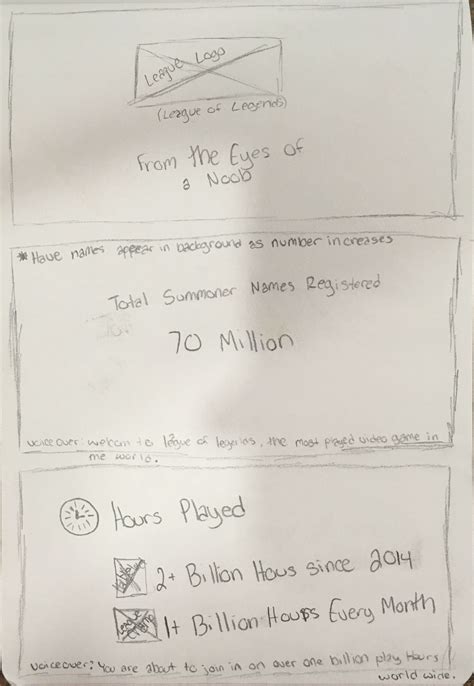 League Logo
(League of Legends)
From the Eyes of
a Noob
*Have names appear in background as number increases
Total Summoner Names Registered
70 Million
voiceover: welcom to league of legends, the most played video game in
the world.
Hours Played
2+ Billion Hours since 2014
1+ Billion Hours Every Month
voiceover: You are about to join in on over one billion play hours
world wide.